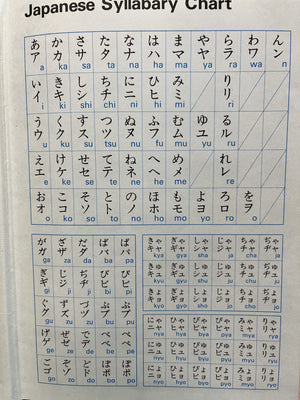 Japanese Syllabary Chart
あア かカ さサ たタ なナ はハ まマ やヤ らラ わワ んン
a ka sa ta na ha ma ya ra wa n
いイ きキ しシ ちチ にニ ひヒ みミ りリ
i ki shi chi ni hi mi ri
うウ くク すス つツ ぬヌ ふフ むム ゆユ るル
u ku su tsu nu fu mu yu ru
えエ けケ せセ てテ ねネ へヘ めメ れレ
e ke se te ne he me re
おオ こコ そソ とト のノ ほホ もモ よヨ ろロ をヲ
o ko so to no ho mo yo ro o
がガ ざザ だダ ばバ ぱパ
ga za da ba pa
ぎギ じジ ぢヂ びビ ぴピ
gi ji ji bi pi
ぐグ ずズ づヅ ぶブ ぷプ
gu zu zu bu pu
げゲ ぜゼ でデ べベ ぺペ
ge ze de be pe
ごゴ ぞゾ どド ぼボ ぽポ
go zo do bo po
きゃキャ ぎゃギャ しゃシャ じゃジャ ちゃチャ ぢゃヂャ
kya gya sha ja cha ja
きゅキュ ぎゅギュ しゅシュ じゅジュ ちゅチュ ぢゅヂュ
kyu gyu shu ju chu ju
きょキョ ぎょギョ しょショ じょジョ ちょチョ ぢょヂョ
kyo gyo sho jo cho jo
にゃニャ ひゃヒャ びゃビャ ぴゃピャ みゃミャ りゃリャ
nya hya bya pya mya rya
にゅニュ ひゅヒュ びゅビュ ぴゅピュ みゅミュ りゅリュ
nyu hyu byu pyu myu ryu
にょニョ ひょヒョ びょビョ ぴょピョ みょミョ りょリョ
nyo hyo byo pyo myo ryo